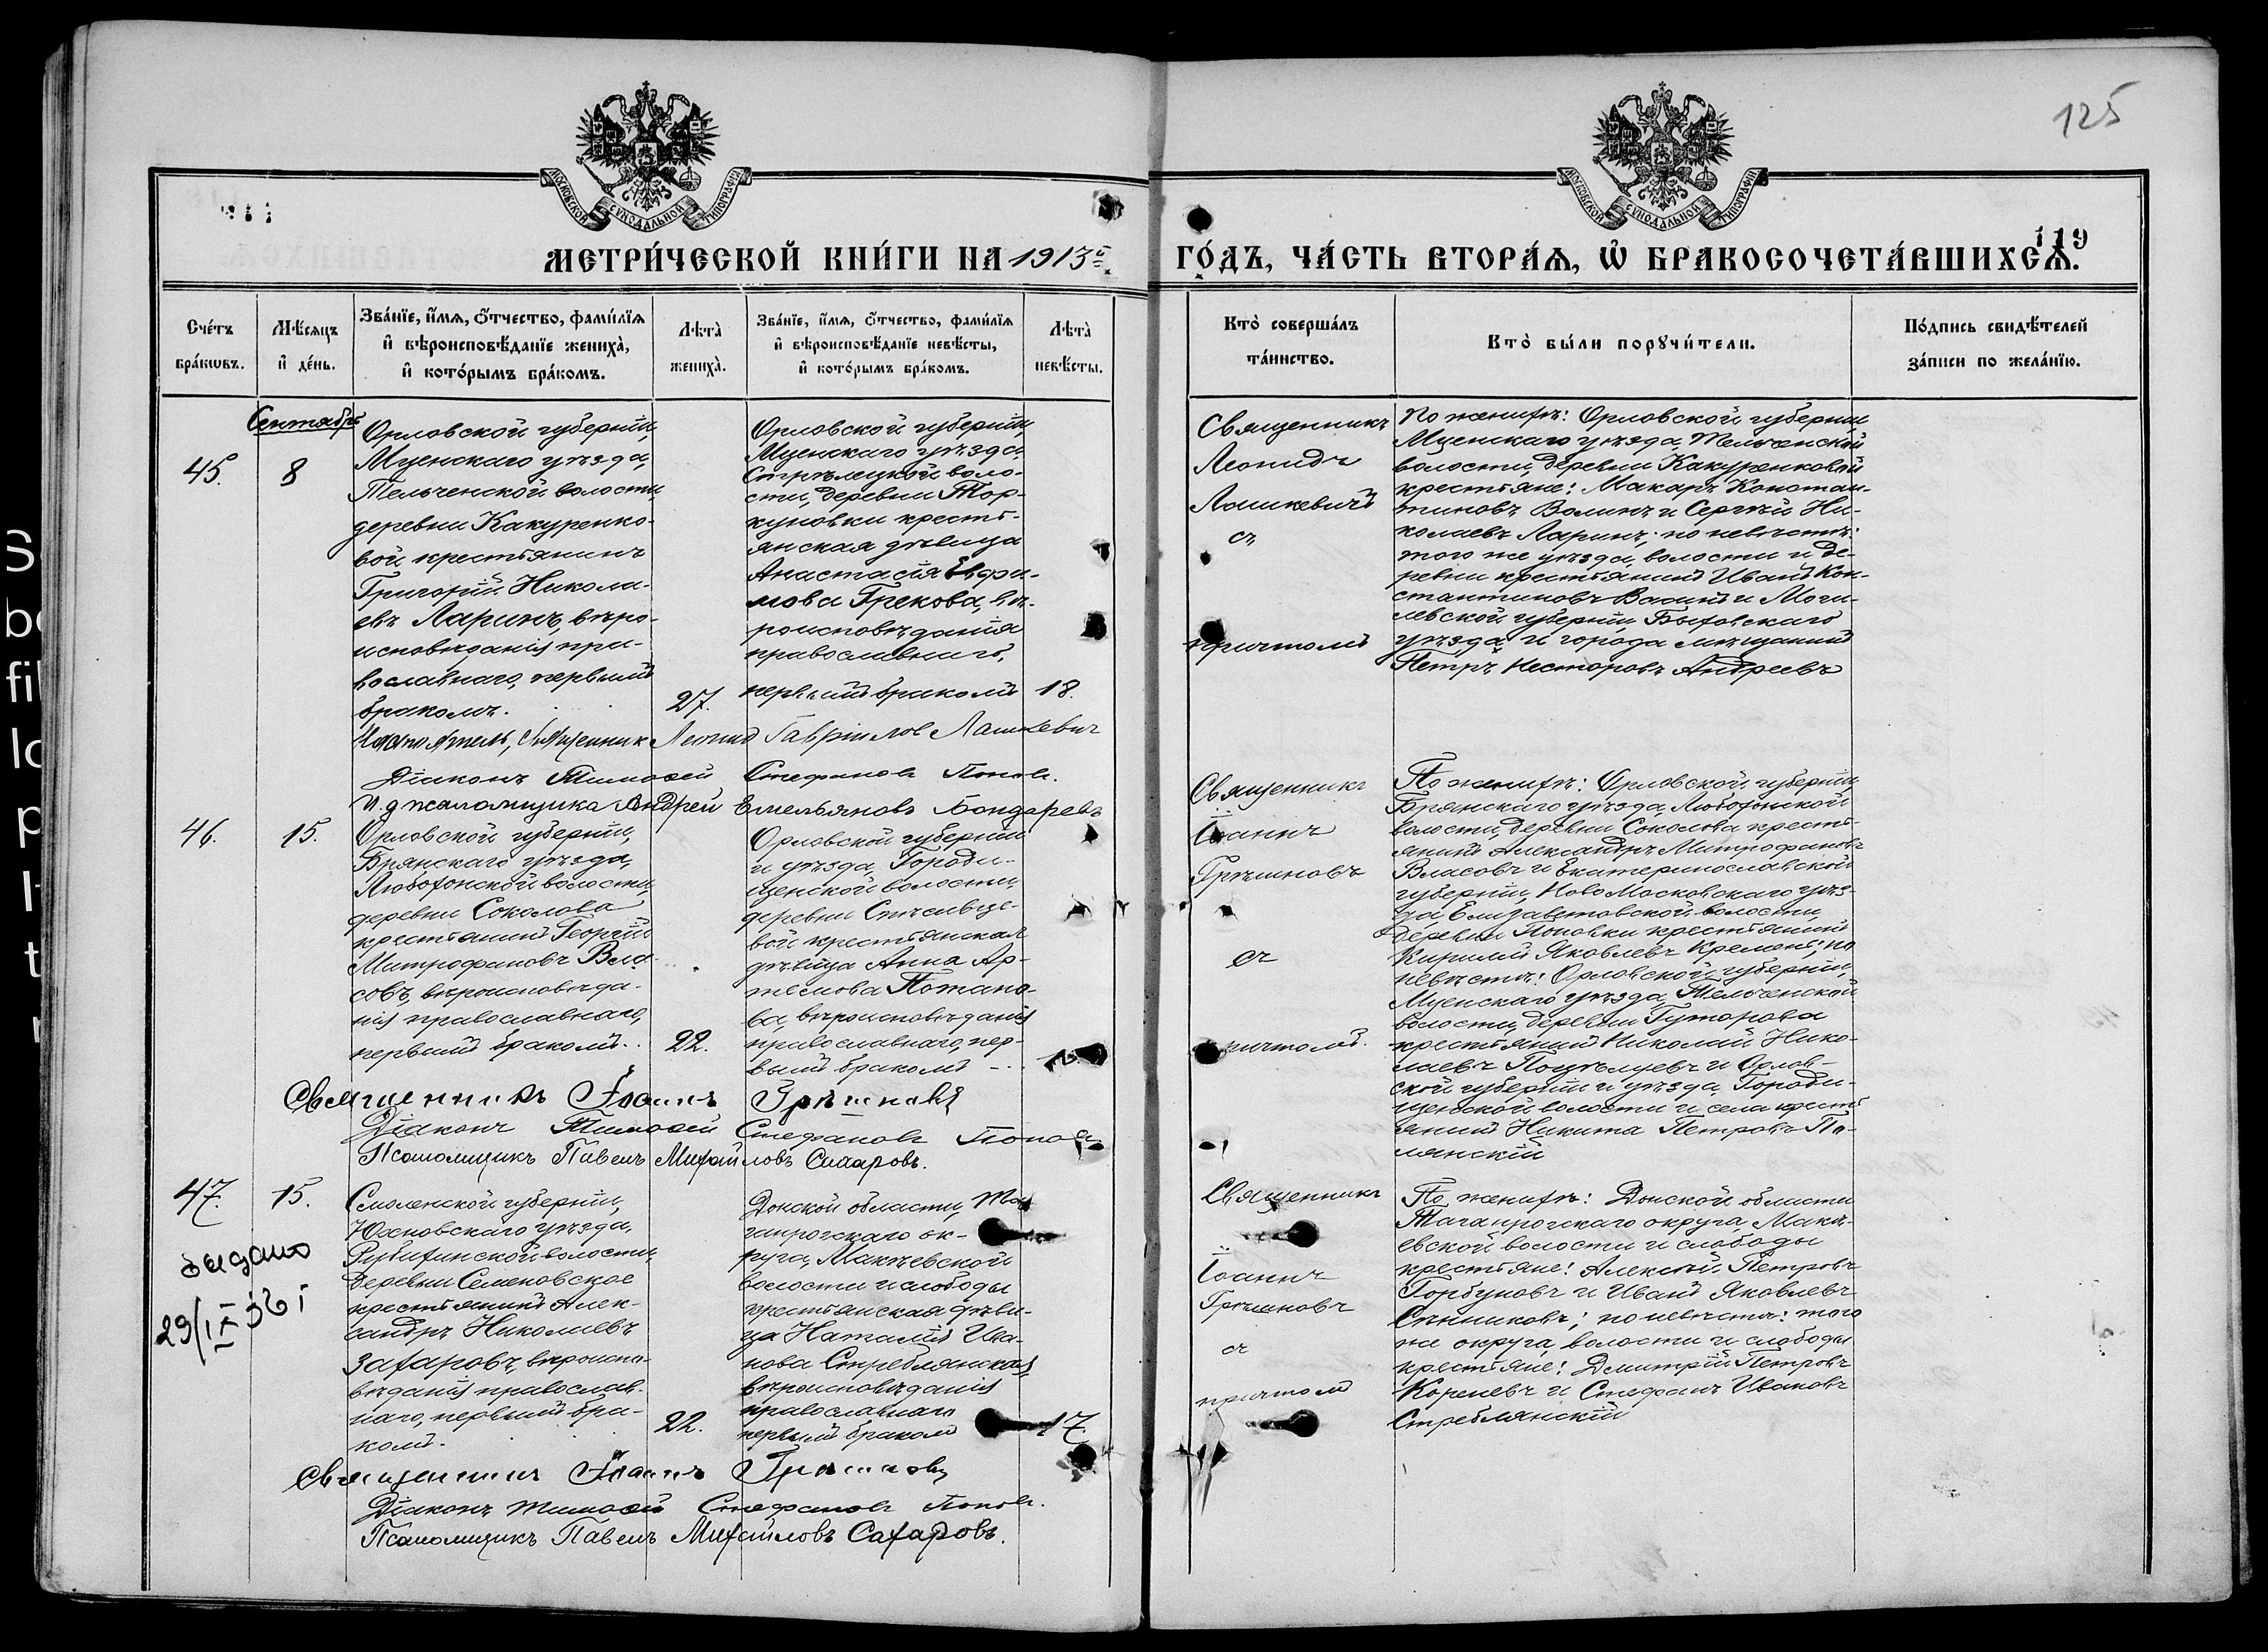 125
МОСКОВСКОЙ СѴНОДАЛЬНОЙ ТИПОГРАФІИ
МОСКОВСКОЙ СѴНОДАЛЬНОЙ ТИПОГРАФІИ
119
МЕТРИ́ЧЕСКОЙ КНИ́ГИ НА 1913й
ГО́ДЪ, ЧА́СТЬ ВТОРА́Ѧ, Ѡ҆ БРАКОСОЧЕТА́ВШИХСѦ.
Сче́тъ бра́кѡвъ.
Мѣ́сяцъ и҆ де́нь.
Зва́нїе, и҆́мѧ, ѻ҆́тчество, фами́лїѧ
и҆ вѣроисповѣ́данїе жениха̀,
и҆ кото́рымъ бра́комъ.
Лѣта̀ жениха̀.
Зва́нїе, и҆́мѧ, ѻ҆́тчество, фами́лїѧ
и҆ вѣроисповѣ́данїе невѣ́сты,
и҆ кото́рымъ бра́комъ.
Лѣта̀ невѣ́сты.
Кто̀ соверша́лъ
та́инство.
Кто̀ бы́ли порꙋчи́тели.
По́дпись свидѣ́телей
за́писи по жела́нїю.
Сентябрь
45.
8
Орловской губерніи,
Мценскаго уѣзда,
Тельченской волости,
деревни Какуренко-
вой крестьянинъ
Григорій Никола-
евъ Ларинъ, вѣро-
исповѣданія пра-
вославнаго, первымъ
бракомъ.
27.
Орловской губерніи,
Мценскаго уѣзда,
Стрѣлецкой воло-
сти, деревни Тор-
куновки кресть-
янская дѣвица
Анастасія Евфи-
мова Грекова, вѣ-
роисповѣданія
православнаго,
первымъ бракомъ
18.
Священникъ
Леонидъ
Лашкевичъ
съ
причтомъ
По женихѣ: Орловской губерніи,
Мценскаго уѣзда, Тельченской
волости, деревни Какуренковой
крестьяне: Макаръ Констан-
тиновъ Волинъ и Сергѣй Ни-
колаевъ Ларинъ; по невѣстѣ:
того же уѣзда, волости и де-
ревни крестьянинъ Иванъ Кон-
стантиновъ и Моги-
левской губерніи, Быховскаго
уѣзда и города мѣщанинъ
Петръ Несторовъ Андреевъ
Настоятель, Священник Леонид Гавріилов Лашкевич
Діаконъ Тимоѳей Стефановъ Поповъ.
И. д. псаломщика Андрей Емельяновъ Бондаревъ
46.
15.
Орловской губерніи,
Брянскаго уѣзда,
Любохонской волости,
деревни Соколова
крестьянинъ Георгій
Митрофановъ Вла-
совъ, вѣроисповѣда-
нія православнаго,
первымъ бракомъ.
22.
Орловской губерніи
и уѣзда, Городи-
щенской волости,
деревни Спѣсивце-
вой крестьянская
дѣвица Анна Ар-
темова Потапо-
ва, вѣроисповѣданія
православнаго, пер-
вымъ бракомъ
Священникъ
Іоаннъ
Грѣшновъ
съ
причтомъ.
По женихѣ: Орловской губерніи,
Брянскаго уѣзда, Любохонской
волости, деревни Соколова кресть-
янинъ Александръ Митрофановъ
Власовъ и Екатеринославской
губерніи, Ново Московскаго уѣз-
да, Елизаветовской волости,
деревни Поповки крестьянинъ
Кириллъ Яковлевъ Кремень; по
невѣстѣ: Орловской губерніи,
Мценскаго уѣзда, Тельченской
волости, деревни Гуторова
крестьянинъ Николай Нико-
лаевъ Поцѣлуевъ и Орлов-
ской губерніи и уѣзда, Городи-
щенской волости и села кресть-
янинъ Никита Петровъ По-
лянскій
Священникъ Іоаннъ Грѣшновъ
Діаконъ Тимоѳей Стефановъ Поповъ
Псаломщикъ Павелъ Михайловъ Сахаровъ.
47.
15.
выдано
Смоленской губерніи,
Юхновскаго уѣзда,
Рубихинской волости,
деревни Семеновское
крестьянинъ Алек-
сандръ Николаевъ
Захаровъ, вѣроиспо-
вѣданія православ-
наго, первымъ бра-
комъ.
22.
Донской области, Та-
ганрогскаго ок-
руга, Макѣевской
волости и слободы
крестьянская дѣви-
ца Наталія Ива-
нова Стреблянская,
вѣроисповѣданія
православнаго
первымъ бракомъ
17.
Священникъ
Іоаннъ
Грѣшновъ
съ
причтомъ
По женихѣ: Донской области
Таганрогскаго округа, Макѣ-
евской волости и слободы
крестьяне: Алексѣй Петровъ
Горбуновъ и Иванъ Яковлевъ
Сѣнниковъ; по невѣстѣ: того
же округа, волости и слободы
крестьяне: Димитрій Петровъ
Кореневъ и Стефанъ Ивановъ
Стреблянскій
Священникъ Іоаннъ Грѣшновъ
Діаконъ Тимоѳей Стефановъ Поповъ.
Псаломщикъ Павелъ Михайловъ Сахаровъ.